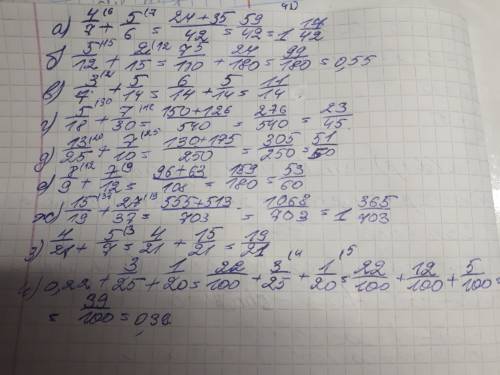 а) 4/7 (6 + 5/6 (7 = 24+35/42 = 59/42 = 1 17/42
б) 5/12 (15 + 2/15 (12 = 75/180 + 24/180 = 99/180 = 0,55
в) 3/7 (2 + 5/14 = 6/14 + 5/14 = 11/14
г) 5/18 (30 + 7/30 (18 = 150+126/540 = 276/540 = 23/45
д) 13/25 (10 + 7/10 (25 = 130+175/250 = 305/250 = 51/50
е) 8/9 (12 + 7/12 (9 = 96+63/108 = 159/180 = 53/60
ж) 15/19 (37 + 27/37 (19 = 555+513/703 = 1068/703 = 1 365/703
з) 4/21 + 5/7 (3 = 4/21 + 15/21 = 19/21
и) 0,22 + 3/25 + 1/20 = 22/100 + 3/25 (4 + 1/20 (5 = 22/100 + 12/100 + 5/100 =
= 39/100 = 0,39